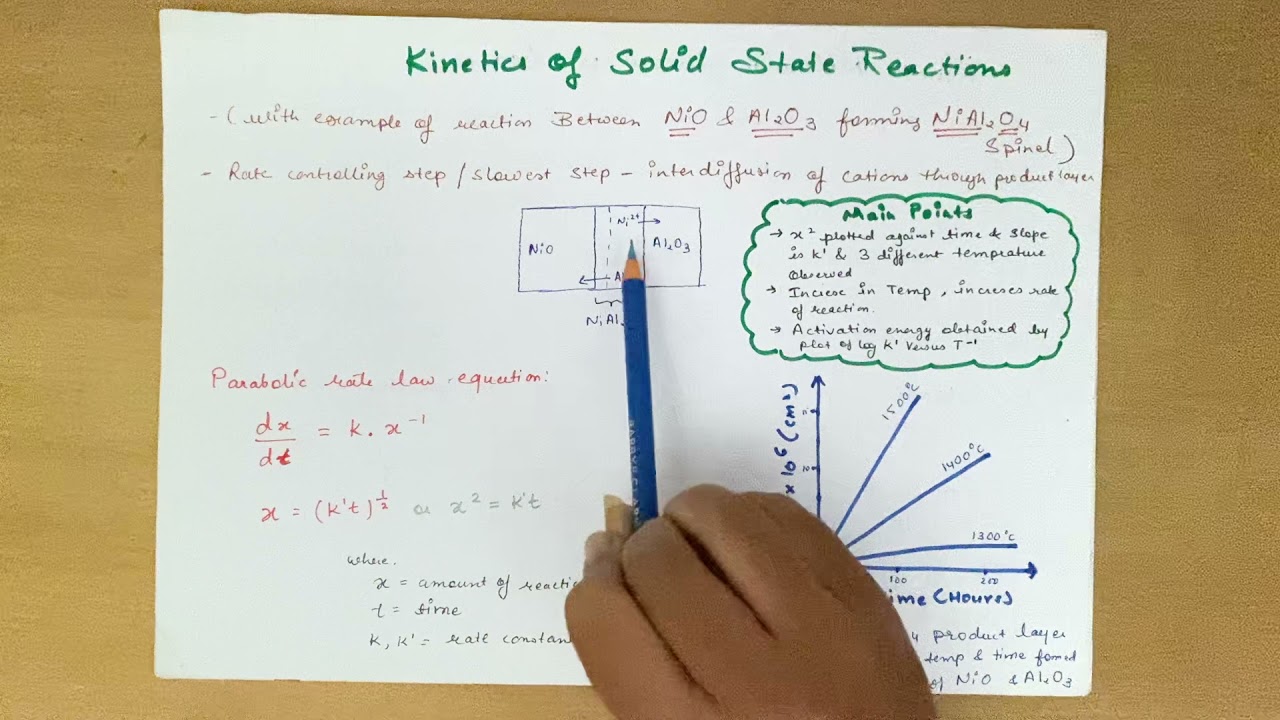 Kinetics of Solid State Reactions
- (with example of reaction Between NiO & Al2O3 forming NiAl2O4
Spinel)
- Rate controlling step / slowest step - interdiffusion of cations through product layer
NiO
Ni2+
Al2O3
A
NiAl
Main Points
→ x² plotted against time & slope
is k' & 3 different temprature
observed
→ Increse in Temp, increses rate
of reaction.
→ Activation energy obtained by
plot of log k' versus T⁻¹
Parabolic rate law equation:
dx/dt = k . x⁻¹
x = (k't)^1/2 or x² = k't
where.
x = amount of reactio
t = time
k, k' = rate constan
x 10⁶ (cm²)
10
1500°C
1400°C
1300°C
100
200
ime (Hours)
4 product layer
temp & time fomed
of NiO & Al2O3